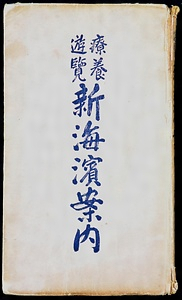 療養
遊覽
新海濱案内